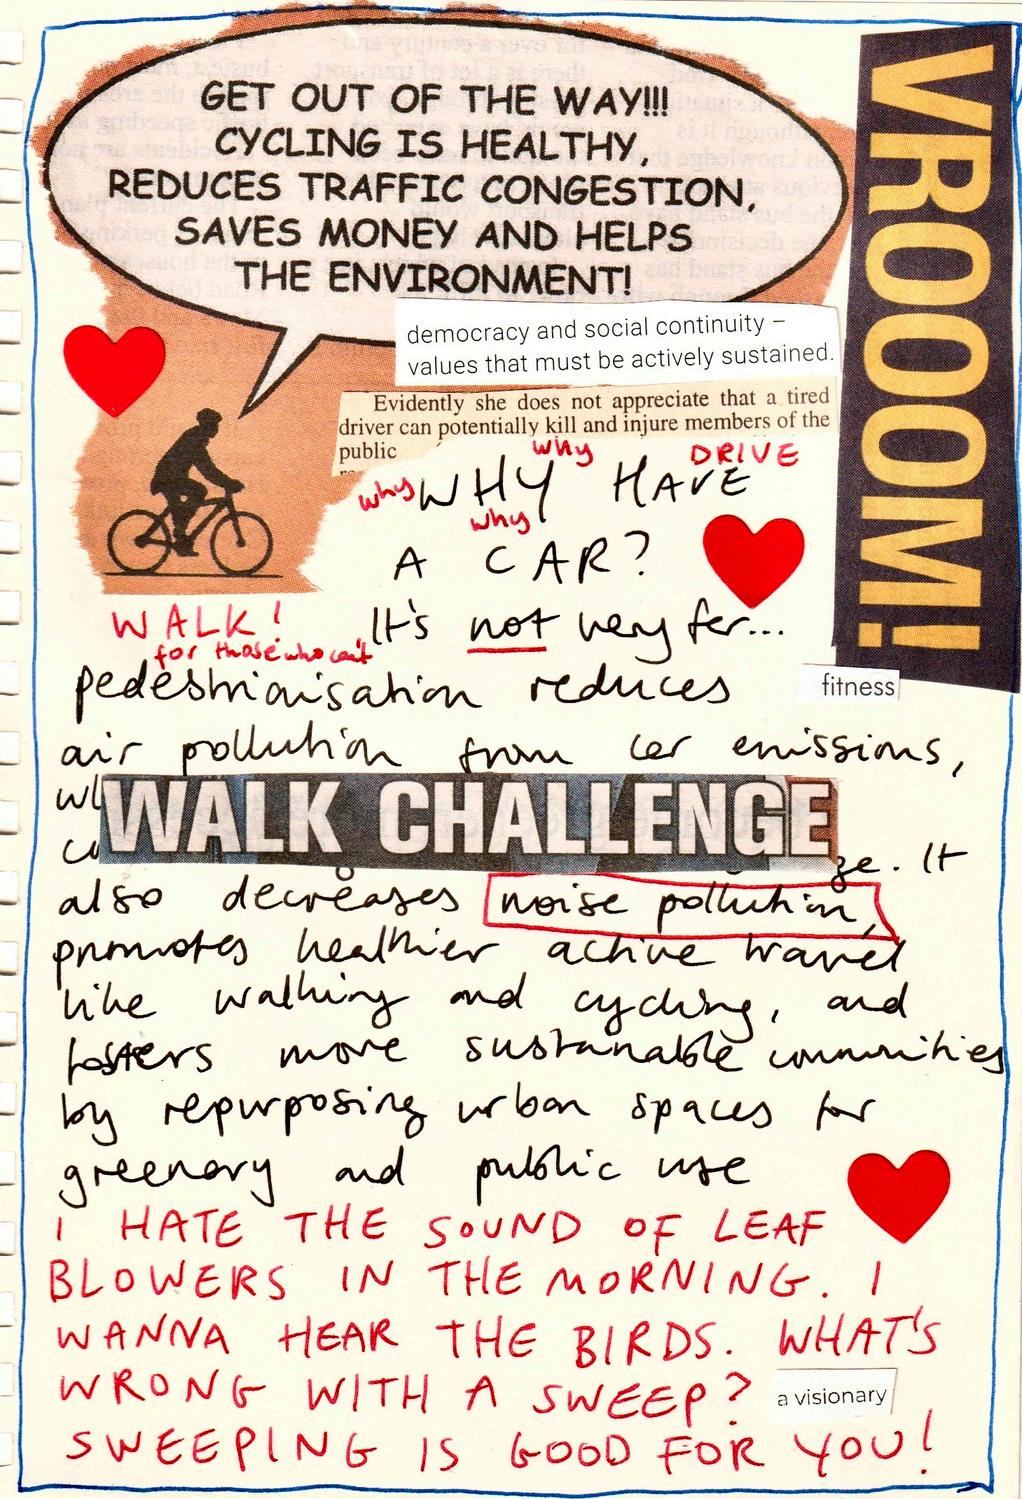 GET OUT OF THE WAY!!!
CYCLING IS HEALTHY,
REDUCES TRAFFIC CONGESTION,
SAVES MONEY AND HELPS
THE ENVIRONMENT!
VROOOM!
democracy and social continuity –
values that must be actively sustained.
Evidently she does not appreciate that a tired
driver can potentially kill and injure members of the
public
why DRIVE
why WHY HAVE
why
A CAR?
WALK! It's not very far...
for those who can't
pedestrianisation reduces
fitness
air pollution from car emissions,
WALK CHALLENGE
It
also decreases noise pollution,
promotes healthier active travel
like walking and cycling, and
fosters more sustainable communities
by repurposing urban spaces for
greenery and public use
I HATE THE SOUND OF LEAF
BLOWERS IN THE MORNING. I
WANNA HEAR THE BIRDS. WHAT'S
WRONG WITH A SWEEP?
a visionary
SWEEPING IS GOOD FOR YOU!